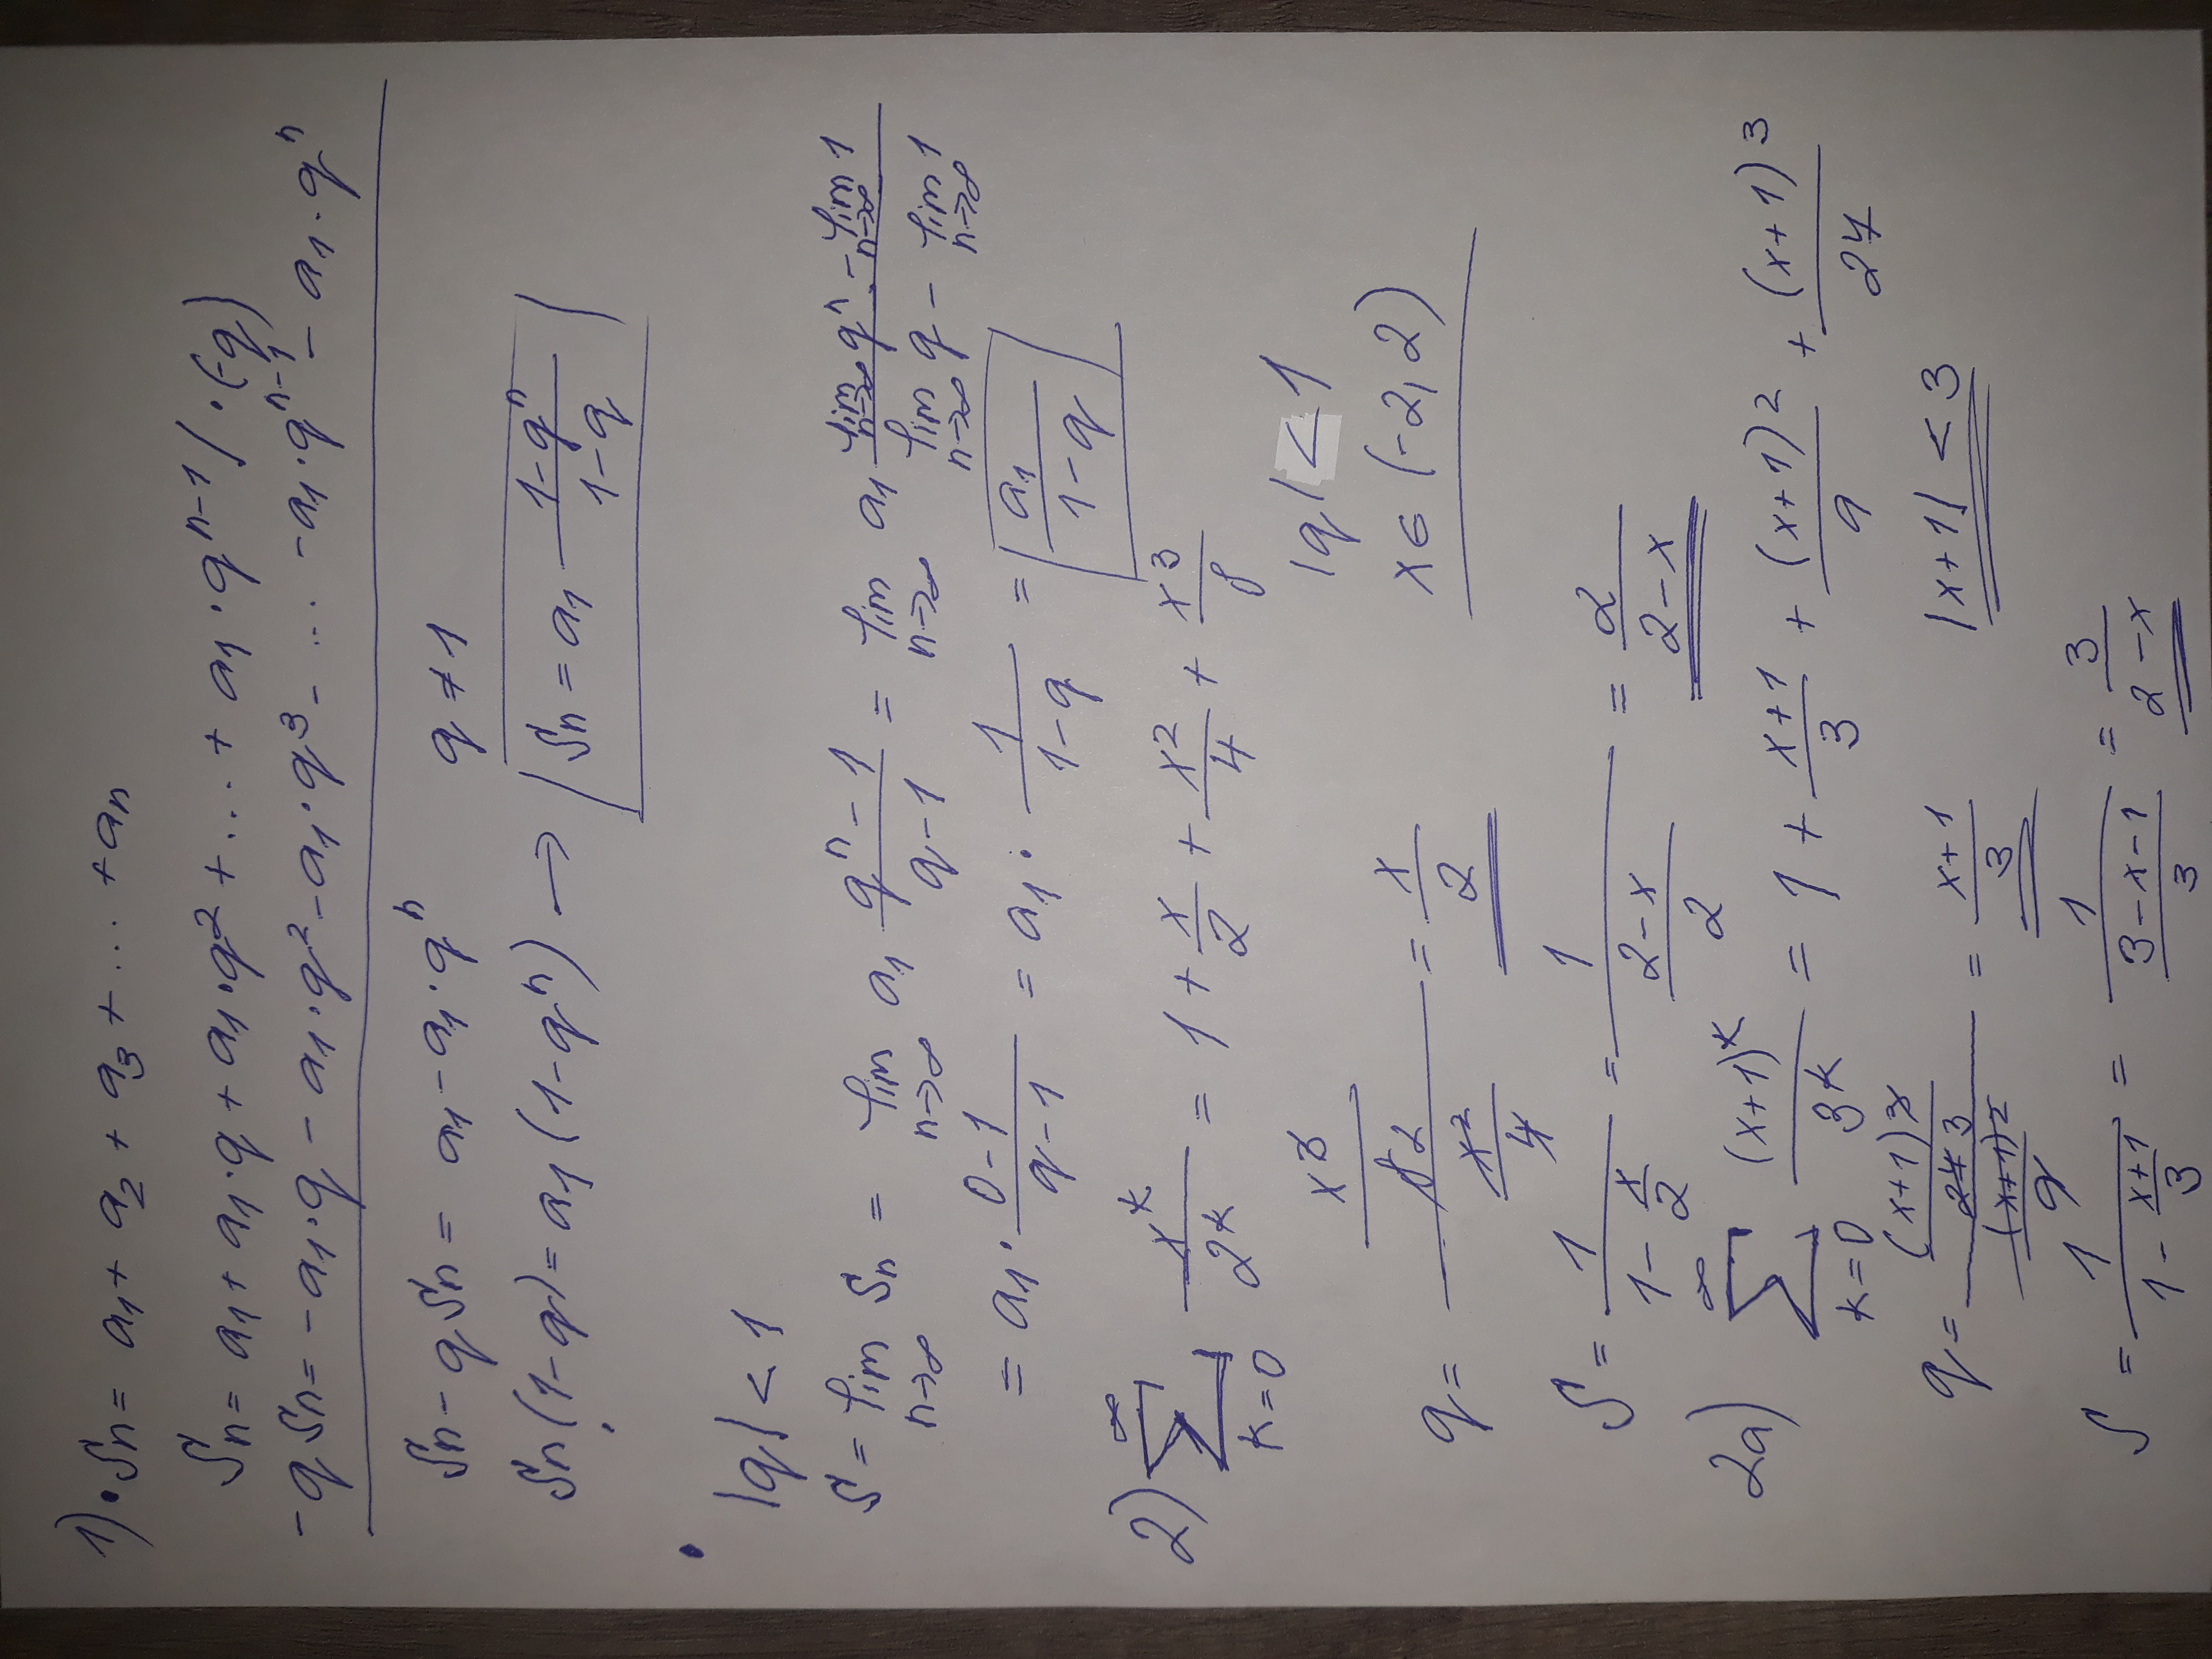 1) • Sn = a1 + a2 + a3 + ... + an
Sn = a1 + a1·q + a1·q² + ... + a1·qⁿ⁻¹ /·(-q)
-qSn = -a1·q - a1·q² - a1·q³ - ... -a1·qⁿ⁻¹ - a1·qⁿ
Sn - qSn = a1 - a1·qⁿ q ≠ 1
Sn(1-q) = a1(1-qⁿ) → Sn = a1 (1-qⁿ)/(1-q)
• |q| < 1
S = lim n→∞ Sn = lim n→∞ a1 (qⁿ-1)/(q-1) = lim n→∞ a1 (lim n→∞ qⁿ - lim n→∞ 1)/(lim n→∞ q - lim n→∞ 1)
= a1· (0-1)/(q-1) = a1· 1/(1-q) = a1/(1-q)
2) ∞ Σ k=0 xᵏ/2ᵏ = 1 + x/2 + x²/4 + x³/8
|q| < 1
q = (x³/8)/(x²/4) = x/2 x∈(-2,2)
S = 1/(1 - x/2) = 1/((2-x)/2) = 2/(2-x)
2a) ∞ Σ k=0 (x+1)ᵏ/3ᵏ = 1 + (x+1)/3 + (x+1)²/9 + (x+1)³/27
q = ((x+1)³/27)/((x+1)²/9) = (x+1)/3 |x+1| < 3
S = 1/(1 - (x+1)/3) = 1/((3-x-1)/3) = 3/(2-x)